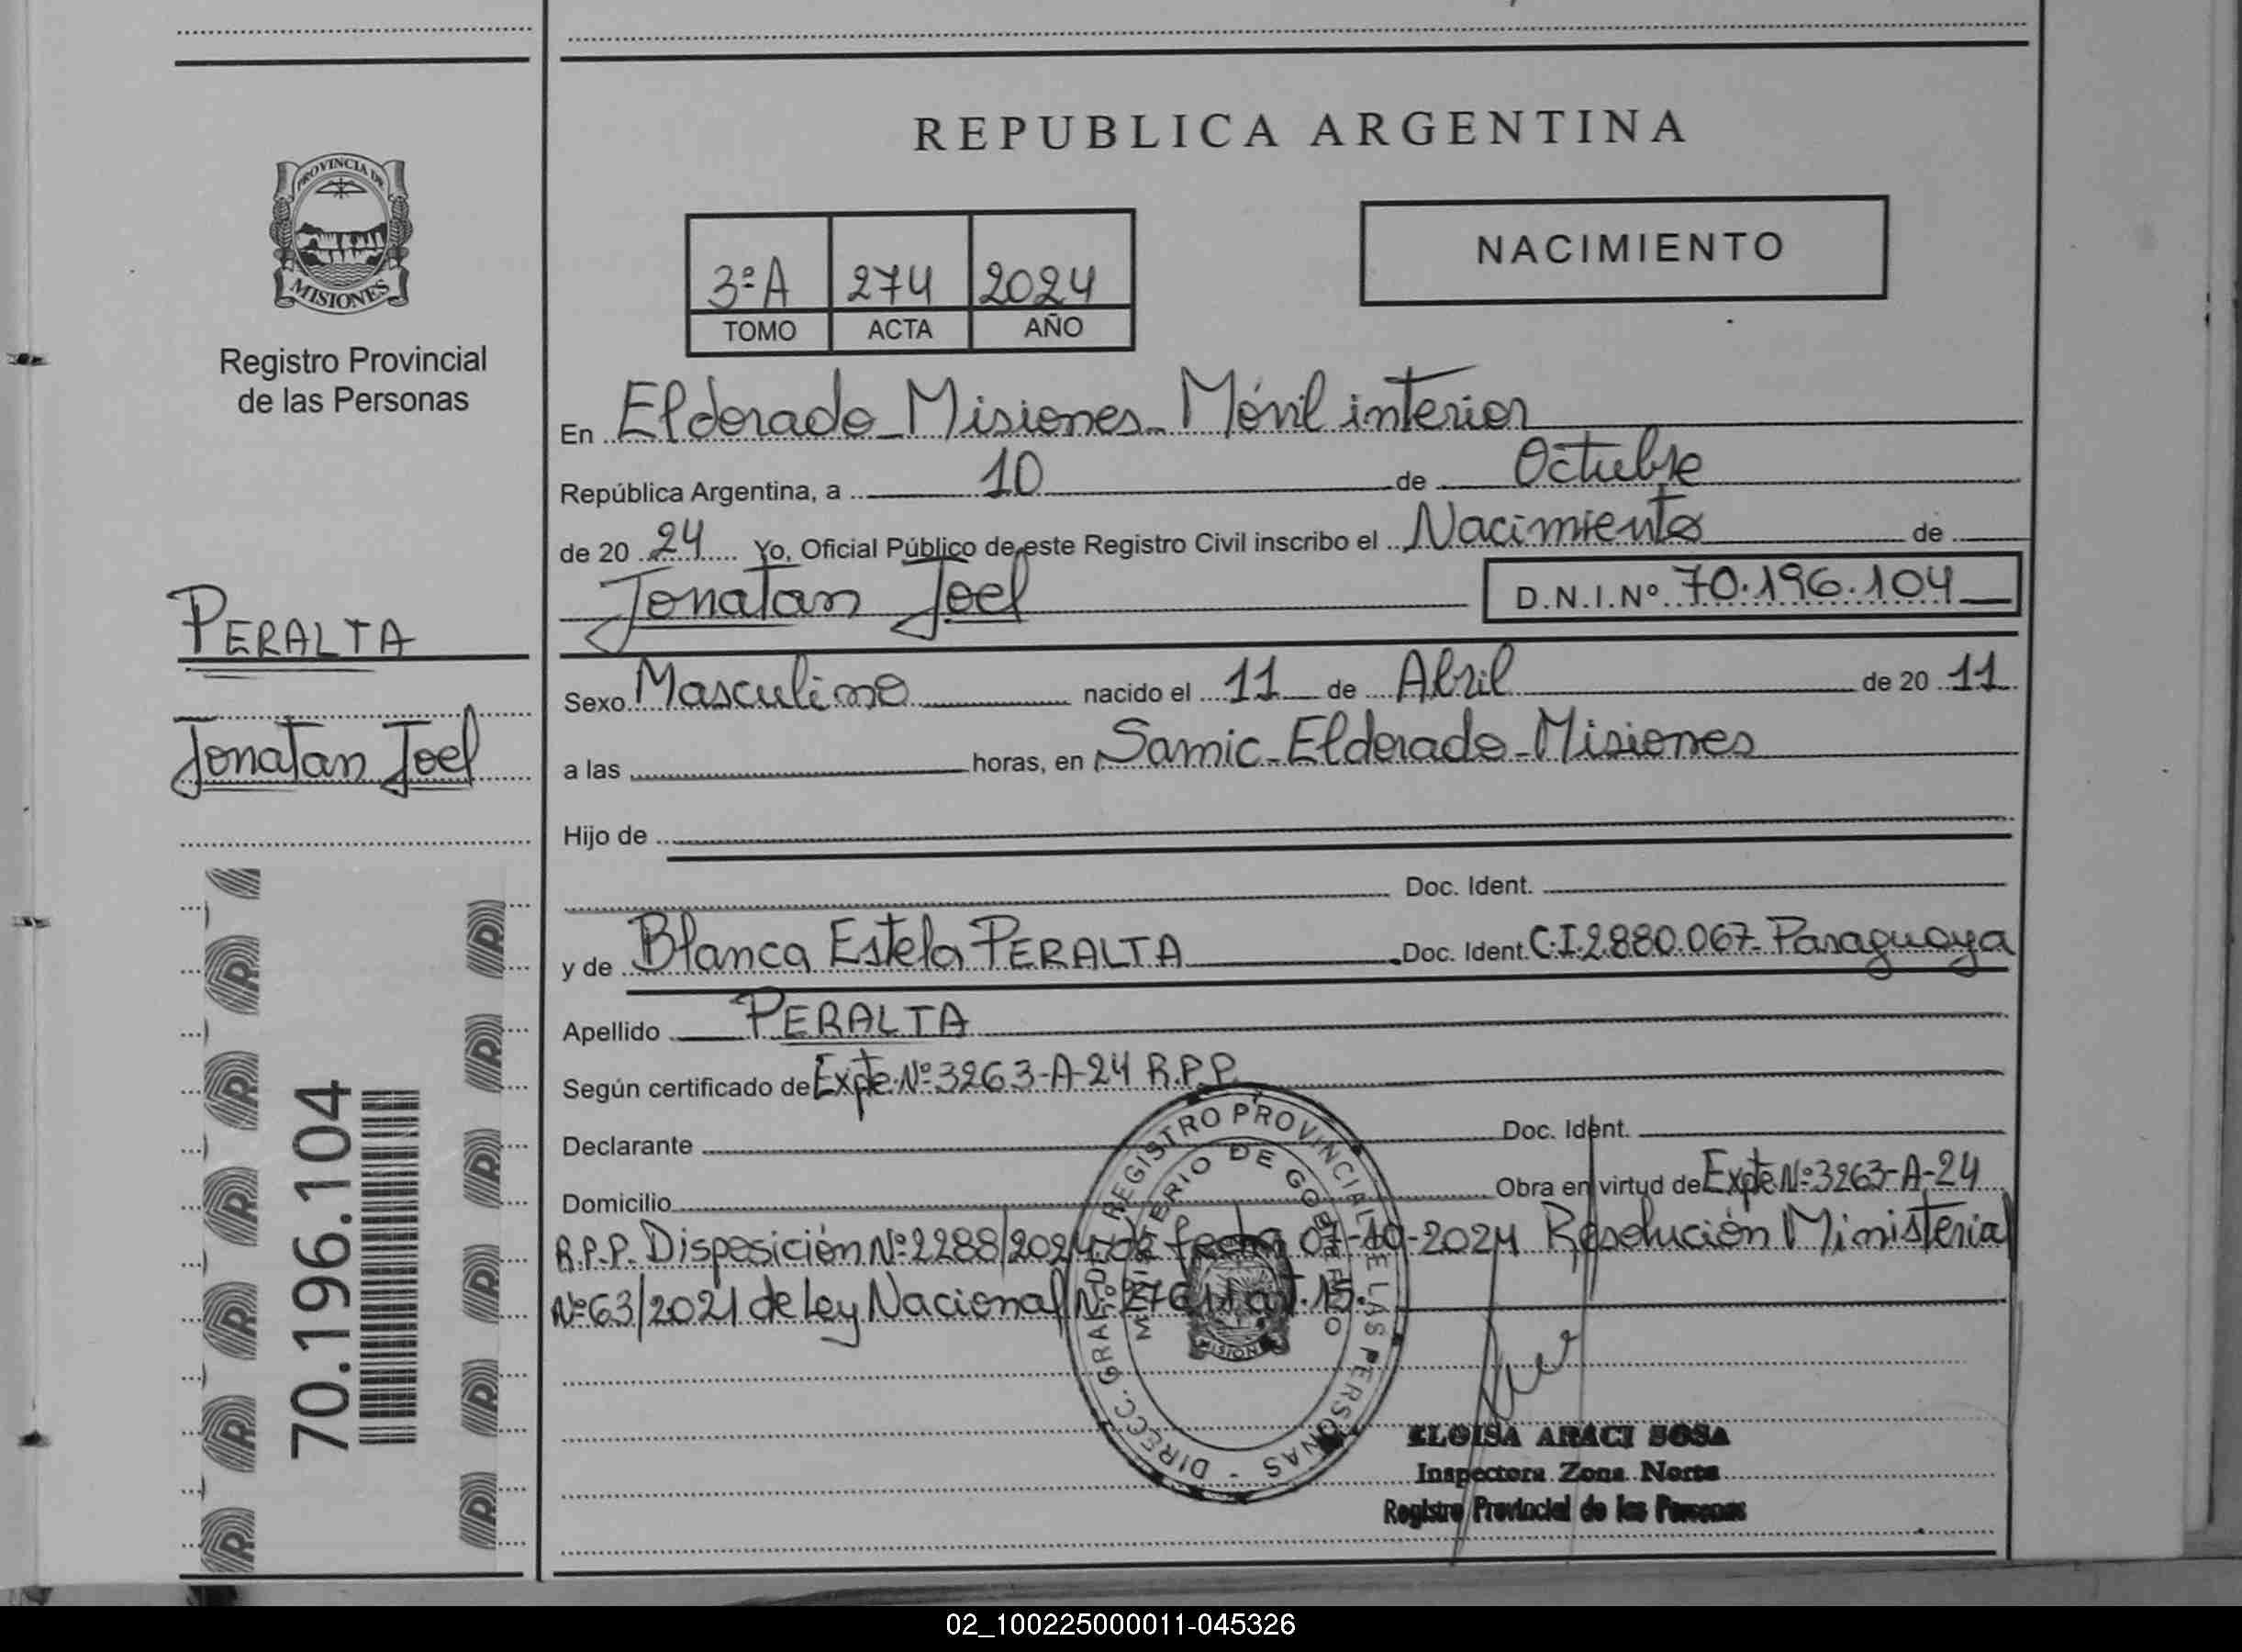 REPUBLICA ARGENTINA
PROVINCIA DE
MISIONES
Registro Provincial
de las Personas
NACIMIENTO
3ºA 274 2024
TOMO ACTA AÑO
En Eldorado - Misiones - Móvil interior
República Argentina, a 10 de Octubre
de 20 24 Yo, Oficial Público de este Registro Civil inscribo el Nacimiento de
Jonatan Joel D.N.I.Nº 70.196.104
PERALTA
Jonatan Joel
Sexo Masculino nacido el 11 de Abril de 20 11
a las horas, en Samic - Eldorado - Misiones
Hijo de
Doc. Ident.
y de Blanca Estela PERALTA Doc. Ident. C.I.2.880.067- Paraguaya
Apellido PERALTA
Según certificado de Expte.Nº3263-A-24 R.P.P.
Declarante Doc. Ident.
Domicilio Obra en virtud de Expte Nº3263-A-24
R.P.P. Disposición Nº2288/2024 de fecha 07-10-2024 Resolución Ministerial
Nº63/2021 de Ley Nacional Nº 27611 art. 15.
DIRECC. GRAL. DE REGISTRO PROVINCIAL DE LAS PERSONAS -
MINISTERIO DE GOBIERNO
MISIONES
ELOISA ARACI SOSA
Inspectora Zona Norte
Registro Provincial de las Personas
70.196.104
02_100225000011-045326